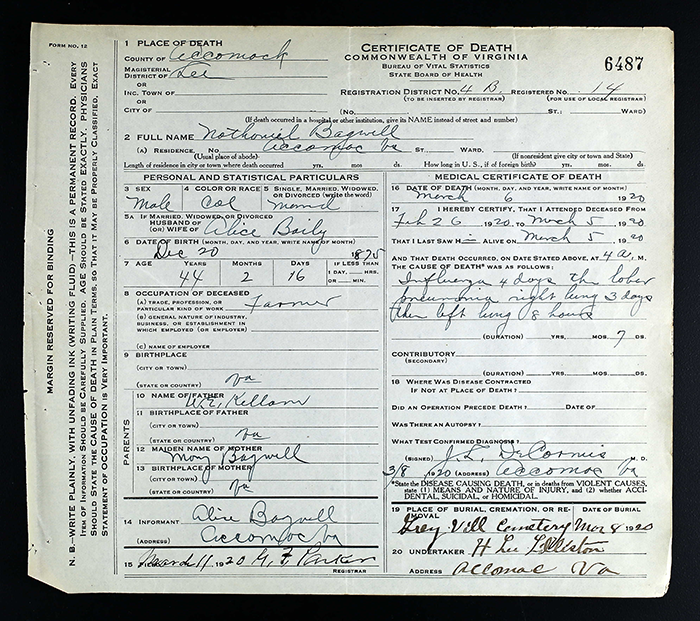 FORM NO. 12
MARGIN RESERVED FOR BINDING
N. B.—WRITE PLAINLY, WITH UNFADING INK (WRITING FLUID)—THIS IS A PERMANENT RECORD. EVERY
ITEM OF INFORMATION SHOULD BE CAREFULLY SUPPLIED. AGE SHOULD BE STATED EXACTLY. PHYSICIANS
SHOULD STATE THE CAUSE OF DEATH IN PLAIN TERMS, SO THAT IT MAY BE PROPERLY CLASSIFIED. EXACT
STATEMENT OF OCCUPATION IS VERY IMPORTANT.
1 PLACE OF DEATH
COUNTY OF Accomack
MAGISTERIAL
DISTRICT OF Lee
OR
INC. TOWN OF
OR
CITY OF
CERTIFICATE OF DEATH
COMMONWEALTH OF VIRGINIA
BUREAU OF VITAL STATISTICS
STATE BOARD OF HEALTH
6487
REGISTRATION DISTRICT NO. 4 B. REGISTERED NO. 14
(TO BE INSERTED BY REGISTRAR) (FOR USE OF LOCAL REGISTRAR)
(NO. ST.; WARD)
(If death occurred in a hospital or other institution, give its NAME instead of street and number)
2 FULL NAME Nathaniel Bagwell
(A) RESIDENCE. NO. Accomac Va ST. WARD.
(Usual place of abode) (If nonresident give city or town and State)
Length of residence in city or town where death occurred yrs. mos. ds. How long in U. S., if of foreign birth? yrs. mos. ds.
PERSONAL AND STATISTICAL PARTICULARS
3 SEX 4 COLOR OR RACE 5 SINGLE, MARRIED, WIDOWED, OR DIVORCED (write the word)
Male Col
5A IF MARRIED, WIDOWED, OR DIVORCED
HUSBAND OF
(OR) WIFE OF Alice Baily
6 DATE OF BIRTH (MONTH, DAY, AND YEAR, WRITE NAME OF MONTH)
Dec 20 1875
7 AGE YEARS MONTHS DAYS IF LESS THAN
1 DAY, HRS.
OR MIN.
44 2 16
8 OCCUPATION OF DECEASED
(A) TRADE, PROFESSION, OR
PARTICULAR KIND OF WORK Farmer
(B) GENERAL NATURE OF INDUSTRY,
BUSINESS, OR ESTABLISHMENT IN
WHICH EMPLOYED (OR EMPLOYER)
(C) NAME OF EMPLOYER
9 BIRTHPLACE
(CITY OR TOWN)
(STATE OR COUNTRY) Va
PARENTS
10 NAME OF FATHER
W.E. Kellam
11 BIRTHPLACE OF FATHER
(CITY OR TOWN)
(STATE OR COUNTRY) Va
12 MAIDEN NAME OF MOTHER
Mary Bagwell
13 BIRTHPLACE OF MOTHER
(CITY OR TOWN)
(STATE OR COUNTRY) Va
14 INFORMANT Alice Bagwell
(ADDRESS) Accomac Va
15 FILED March 11, 1920 Parker
REGISTRAR
MEDICAL CERTIFICATE OF DEATH
16 DATE OF DEATH (MONTH, DAY, AND YEAR, WRITE NAME OF MONTH)
March 6 1920
17 I HEREBY CERTIFY, THAT I ATTENDED DECEASED FROM
Feb 26 1920 TO March 5 1920
THAT I LAST SAW H ALIVE ON March 5, 1920
AND THAT DEATH OCCURRED, ON DATE STATED ABOVE, AT 4 a. M.
THE CAUSE OF DEATH* WAS AS FOLLOWS:
Influenza 4 days the lobar
pneumonia right lung 3 days
then left lung 8 hours
(DURATION) YRS. MOS. 7 DS.
CONTRIBUTORY
(SECONDARY)
(DURATION) YRS. MOS. DS.
18 WHERE WAS DISEASE CONTRACTED
IF NOT AT PLACE OF DEATH?
DID AN OPERATION PRECEDE DEATH? DATE OF
WAS THERE AN AUTOPSY?
WHAT TEST CONFIRMED DIAGNOSIS?
(SIGNED) J.L. DeCormis M. D.
3/8 1920 (ADDRESS) Accomac Va
*State the DISEASE CAUSING DEATH, or in deaths from VIOLENT CAUSES,
state (1) MEANS AND NATURE OF INJURY, and (2) whether ACCI-
DENTAL, SUICIDAL, or HOMICIDAL.
19 PLACE OF BURIAL, CREMATION, OR RE- DATE OF BURIAL
MOVAL
Cemetery Mar 8 1920
20 UNDERTAKER H Lee Lilliston
ADDRESS Accomac Va